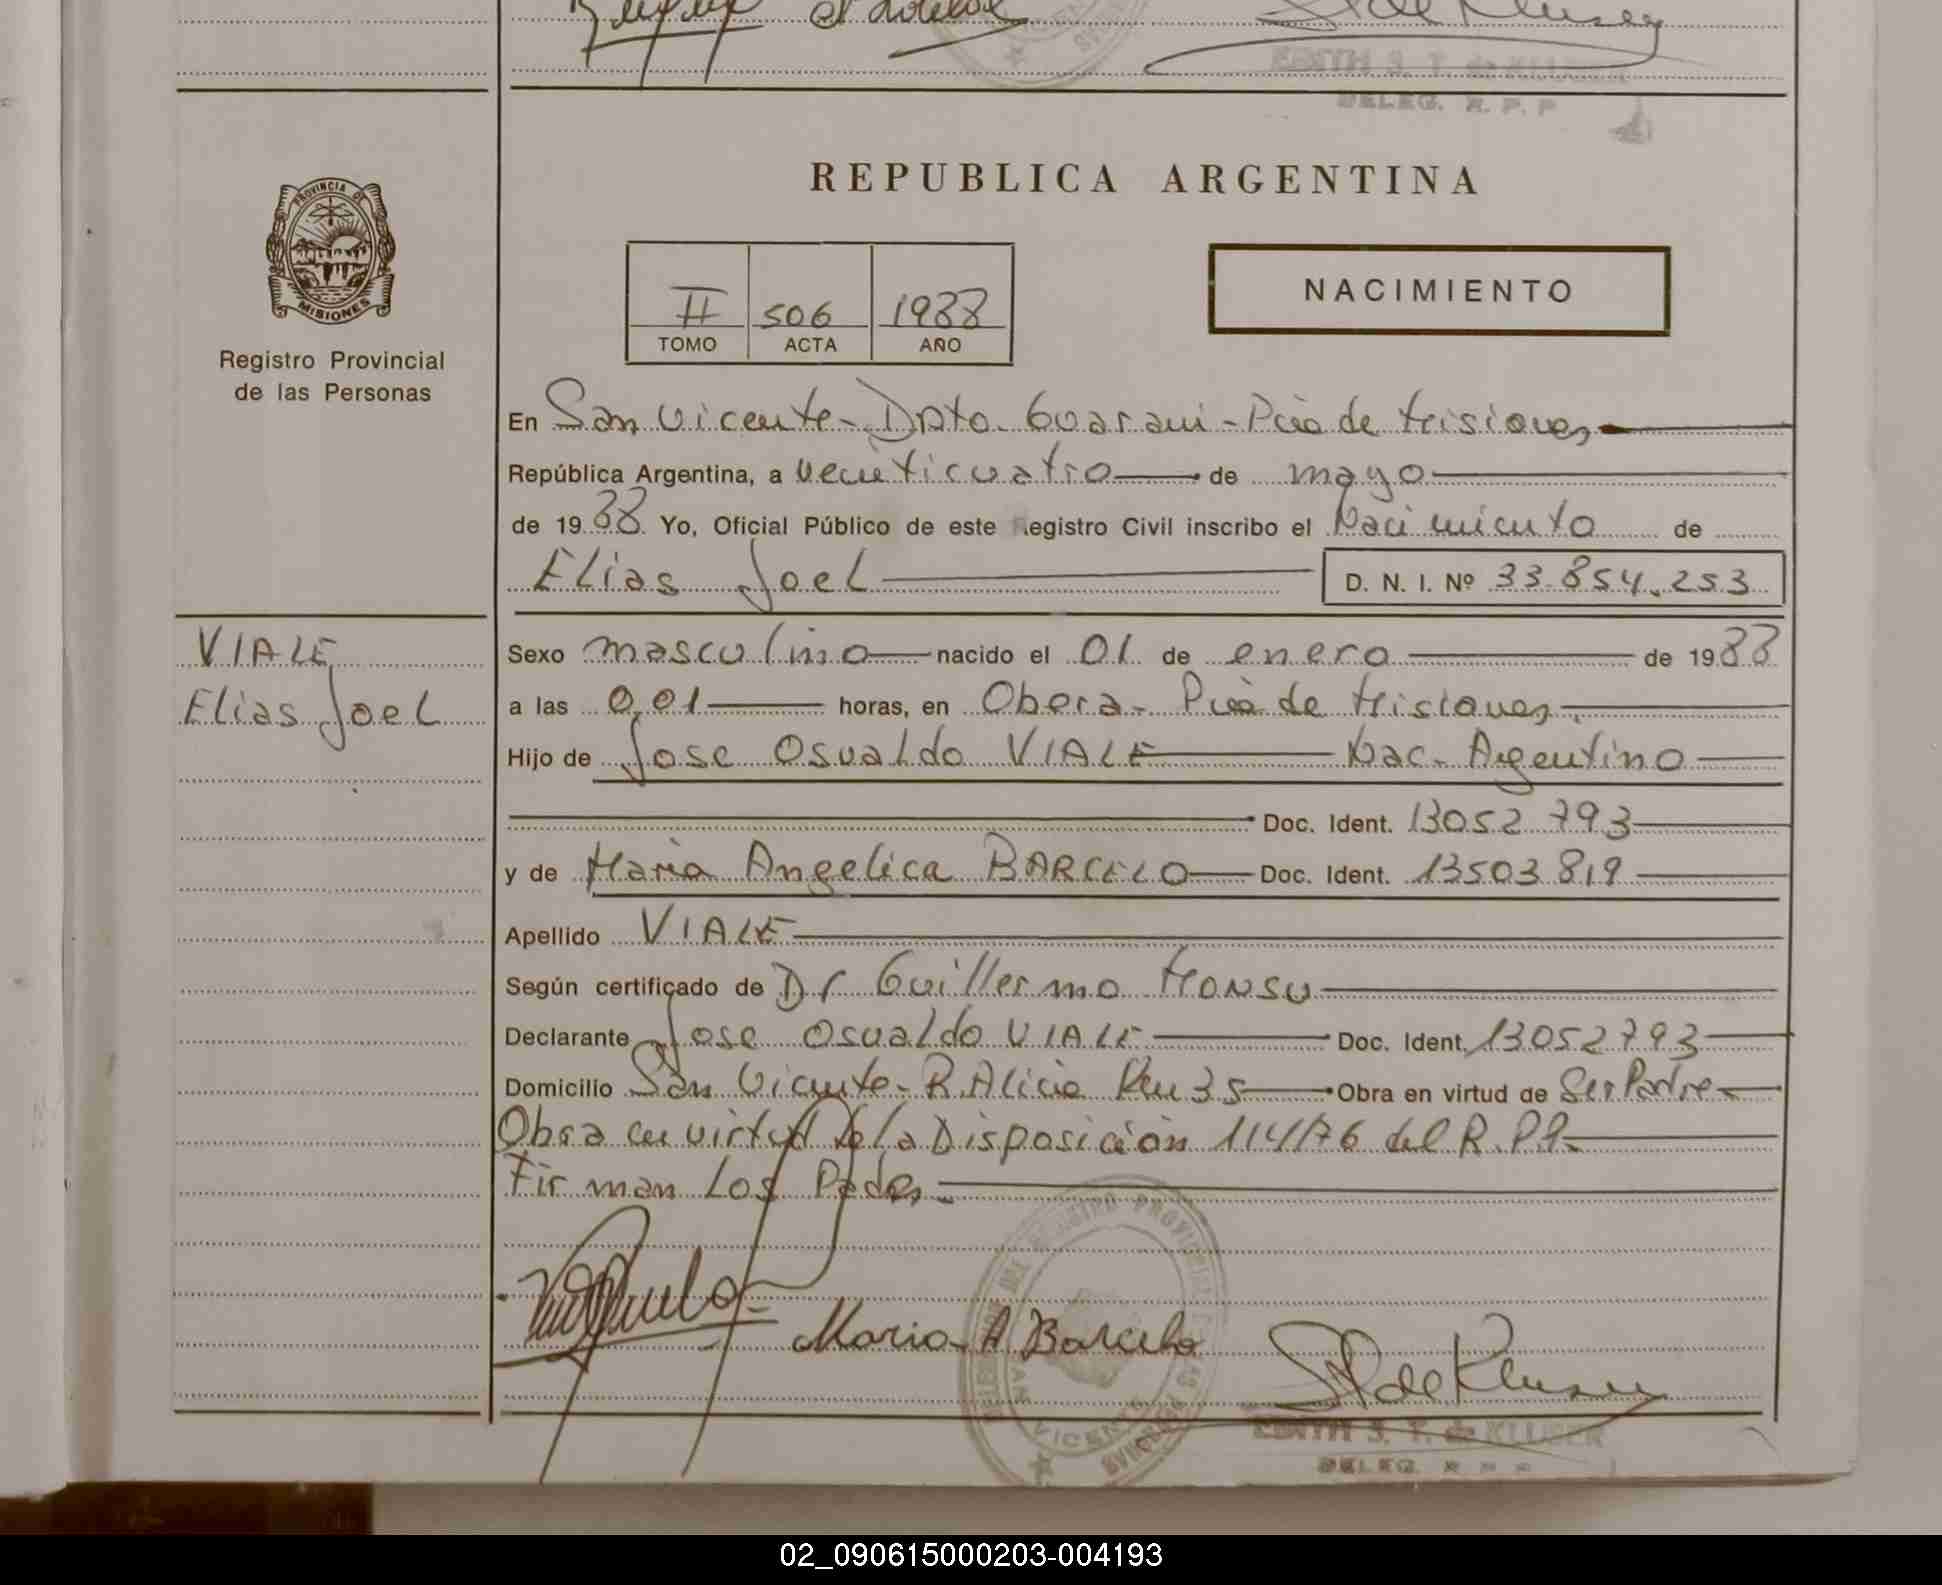 EDITH S. T. de KLUSER
DELEG. R. P. P
PROVINCIA DE
MISIONES
Registro Provincial
de las Personas
REPUBLICA ARGENTINA
II 506 1988
TOMO ACTA AÑO
NACIMIENTO
En San Vicente - Dpto. Guarani - Pcia de Misiones
República Argentina, a veinticuatro de mayo
de 1988 Yo, Oficial Público de este Registro Civil inscribo el Nacimiento de
Elias Joel D. N. I. Nº 33.854.253
VIALE
Elias Joel
Sexo masculino nacido el 01 de enero de 1988
a las 0,01 horas, en Obera - Pcia de Misiones
Hijo de Jose Osvaldo VIALE Nac. Argentino
Doc. Ident. 13052793
y de Maria Angelica BARCELO Doc. Ident. 13503819
Apellido VIALE
Según certificado de Dr Guillermo Monsu
Declarante Jose Osvaldo VIALE Doc. Ident. 13052793
Domicilio San Vicente - P. Alicia Km 35 Obra en virtud de Ser Padre
Obra en virtud de la Disposición 114/76 del R.P.P.
Firman Los Padres
Maria A Barcelo
S T de Kluser
EDITH S. T. de KLUSER
DELEG.
DELEGACION DEL REGISTRO PROVINCIAL DE LAS PERSONAS
SAN VICENTE
02_090615000203-004193